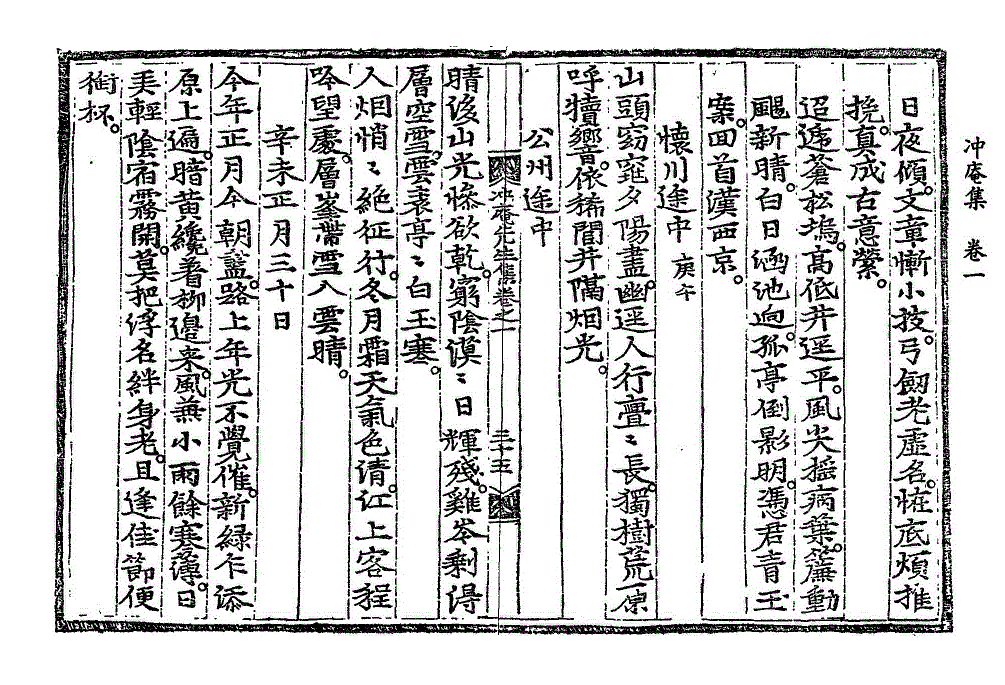 冲庵集　卷一
日夜傾。文章慚小技。弓劒老虛名。恠底煩推
挽。眞成古意縈。
迢遞蒼松塢。高低井逕平。風尖搖病葉。簾動
颸新晴。白日涵池逈。孤亭倒影明。憑君靑玉
案。回首漢西京。
懷川途中 庚午
山頭窈窕夕陽盡。幽逕人行亶〻長。獨樹荒原
呼犢響。依稀閭井隔烟光。
公州途中
冲庵先生集卷之一　三十五
晴後山光慘欲乾。窮陰漠〻日輝殘。雞岑剩得
層空雪。雲表亭〻白玉寒。
人烟悄〻絶征行。冬月霜天氣色淸。江上客程
吟望處。層峯帶雪入雲晴。
辛未正月三十日
今年正月今朝盡。路上年光不覺催。新綠乍添
原上遍。暗黃纔着柳邊來。風兼小雨餘寒薄。日
美輕陰宿霧開。莫把浮名絆身老。且逢佳節便
銜杯。